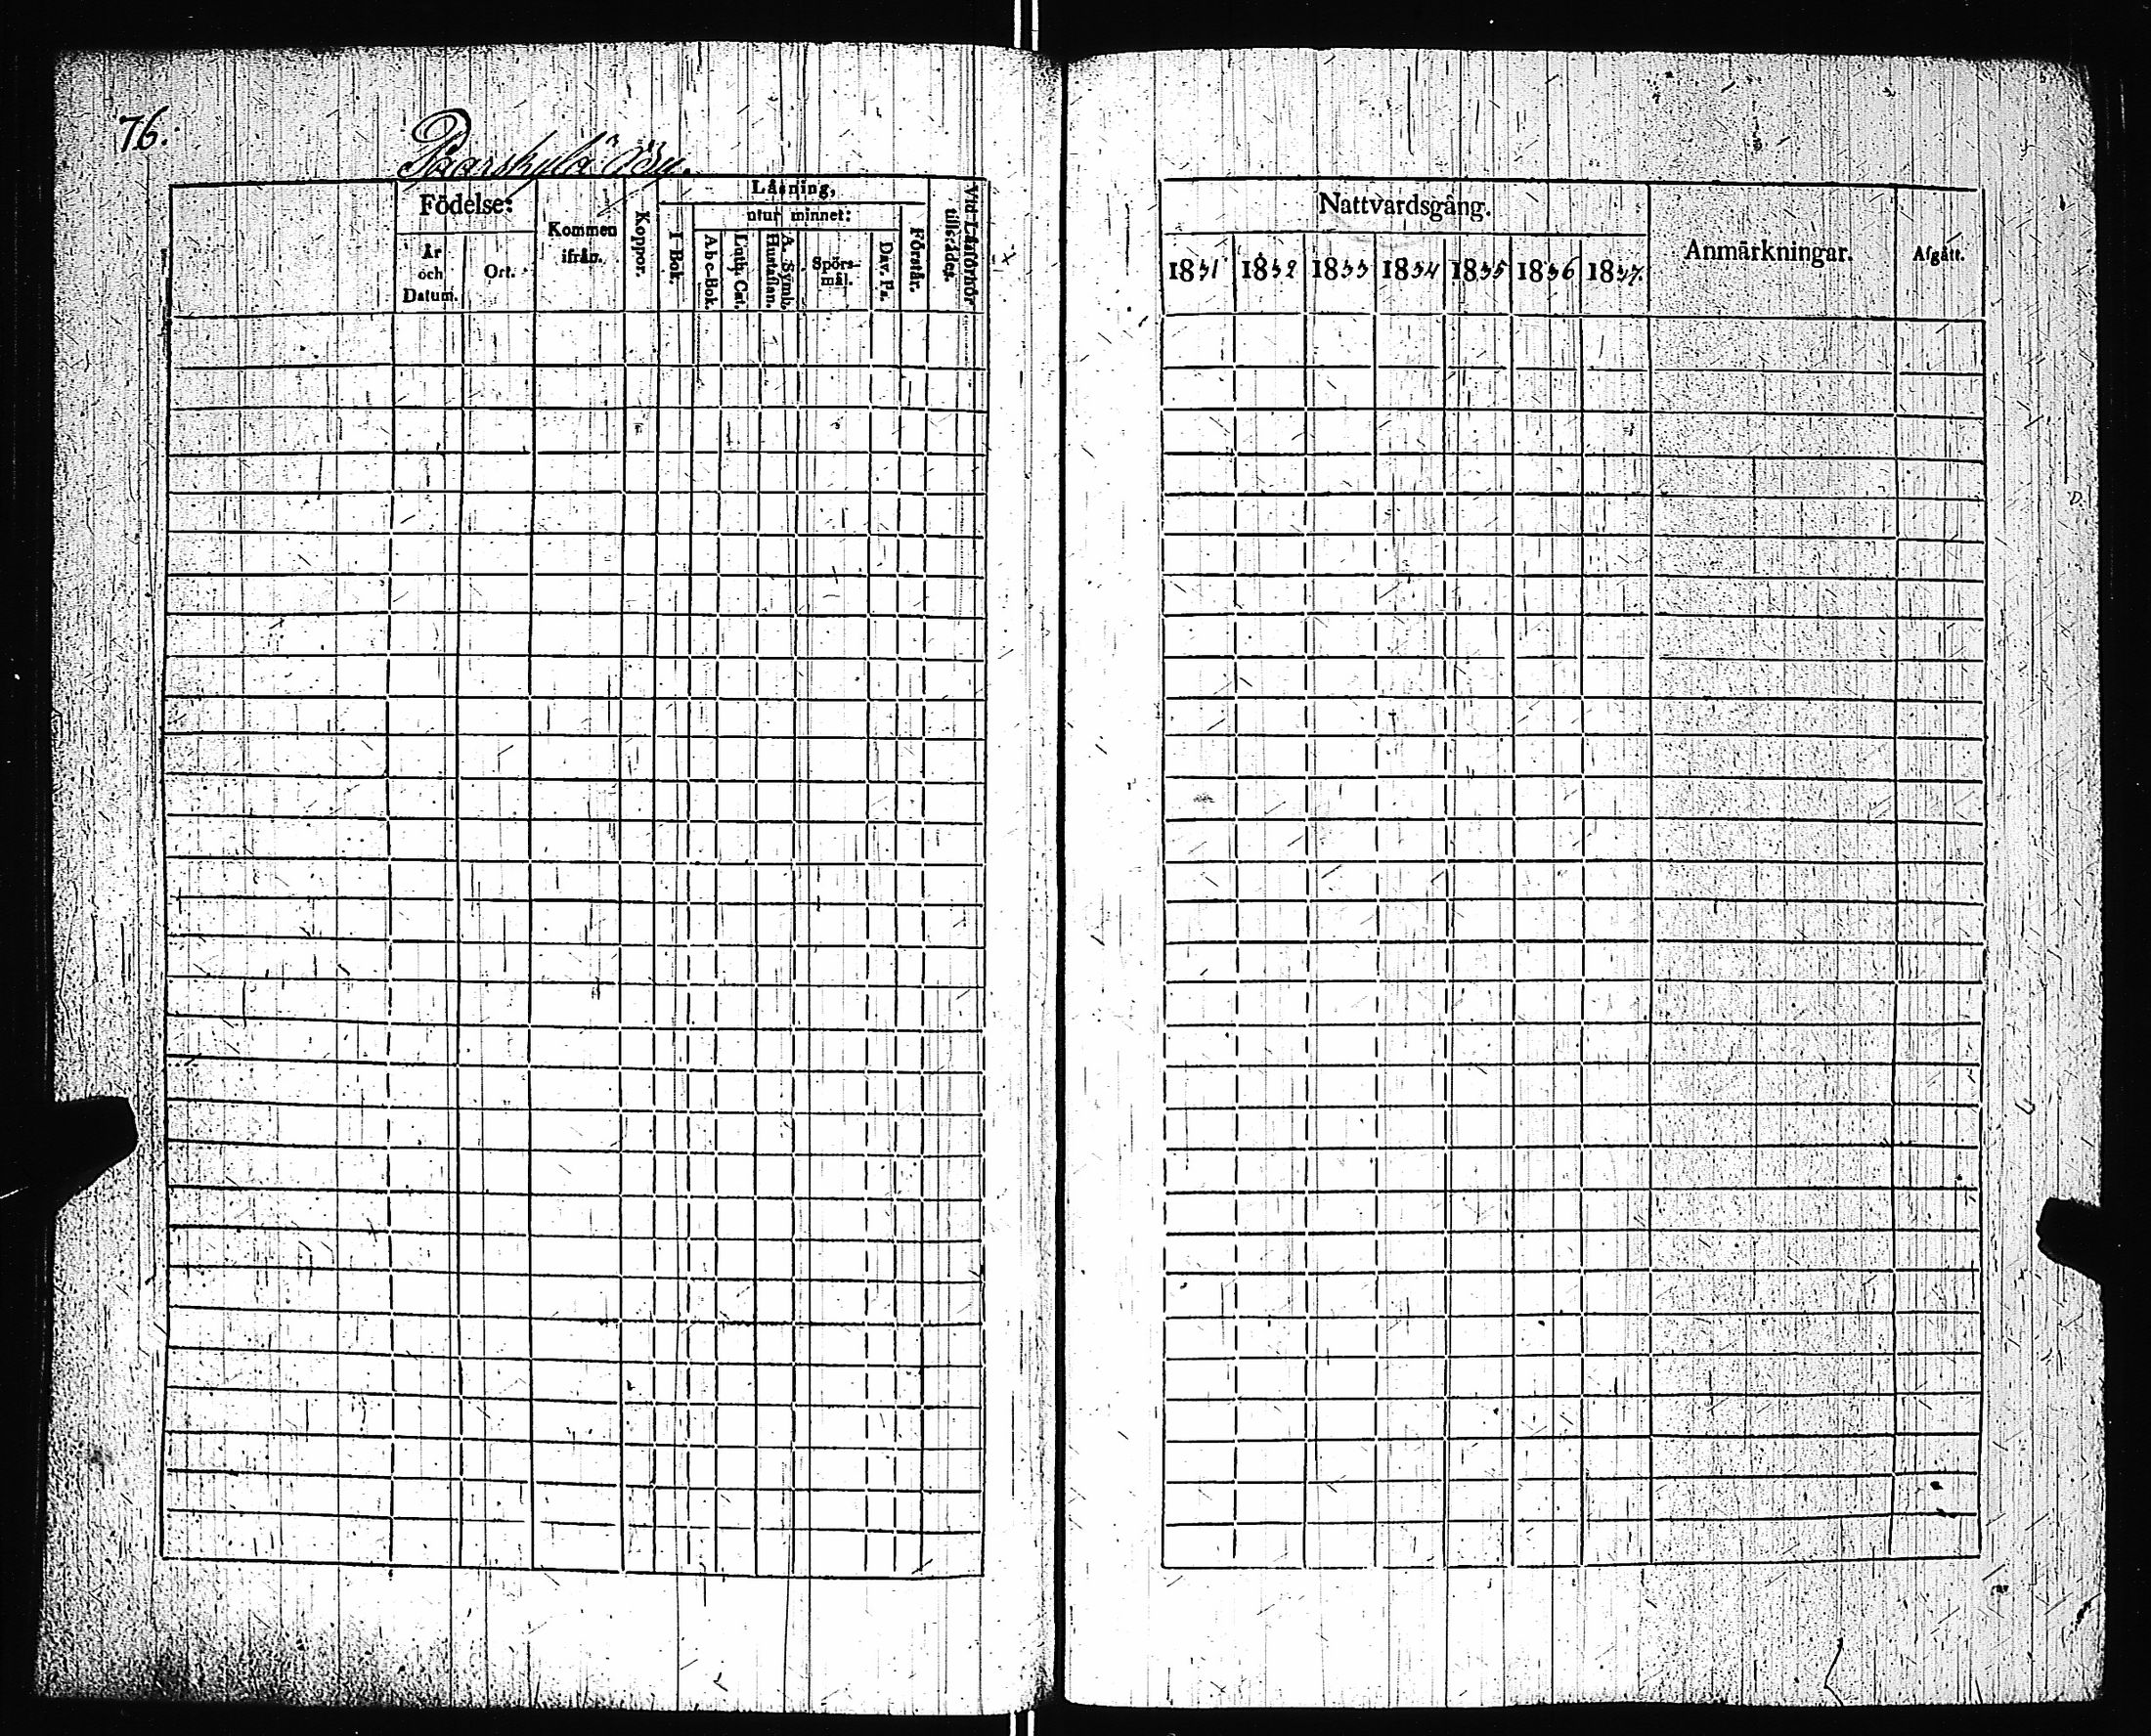 76.
Paarskylä By.
Födelse:
År
och
Datum.
Ort.
Kommen
ifrån.
Koppor.
Läsning,
utur minnet:
I Bok.
A b c-Bok.
Luth. Cat.
A. Symb.
Hustaflan.
Spörs-
mål.
Dav. Ps.
Förstår.
Vid Läsförhör
tillstädes.
Nattvardsgång.
1831 1832 1833 1834 1835 1836 1837.
Anmärkningar.
Afgått.